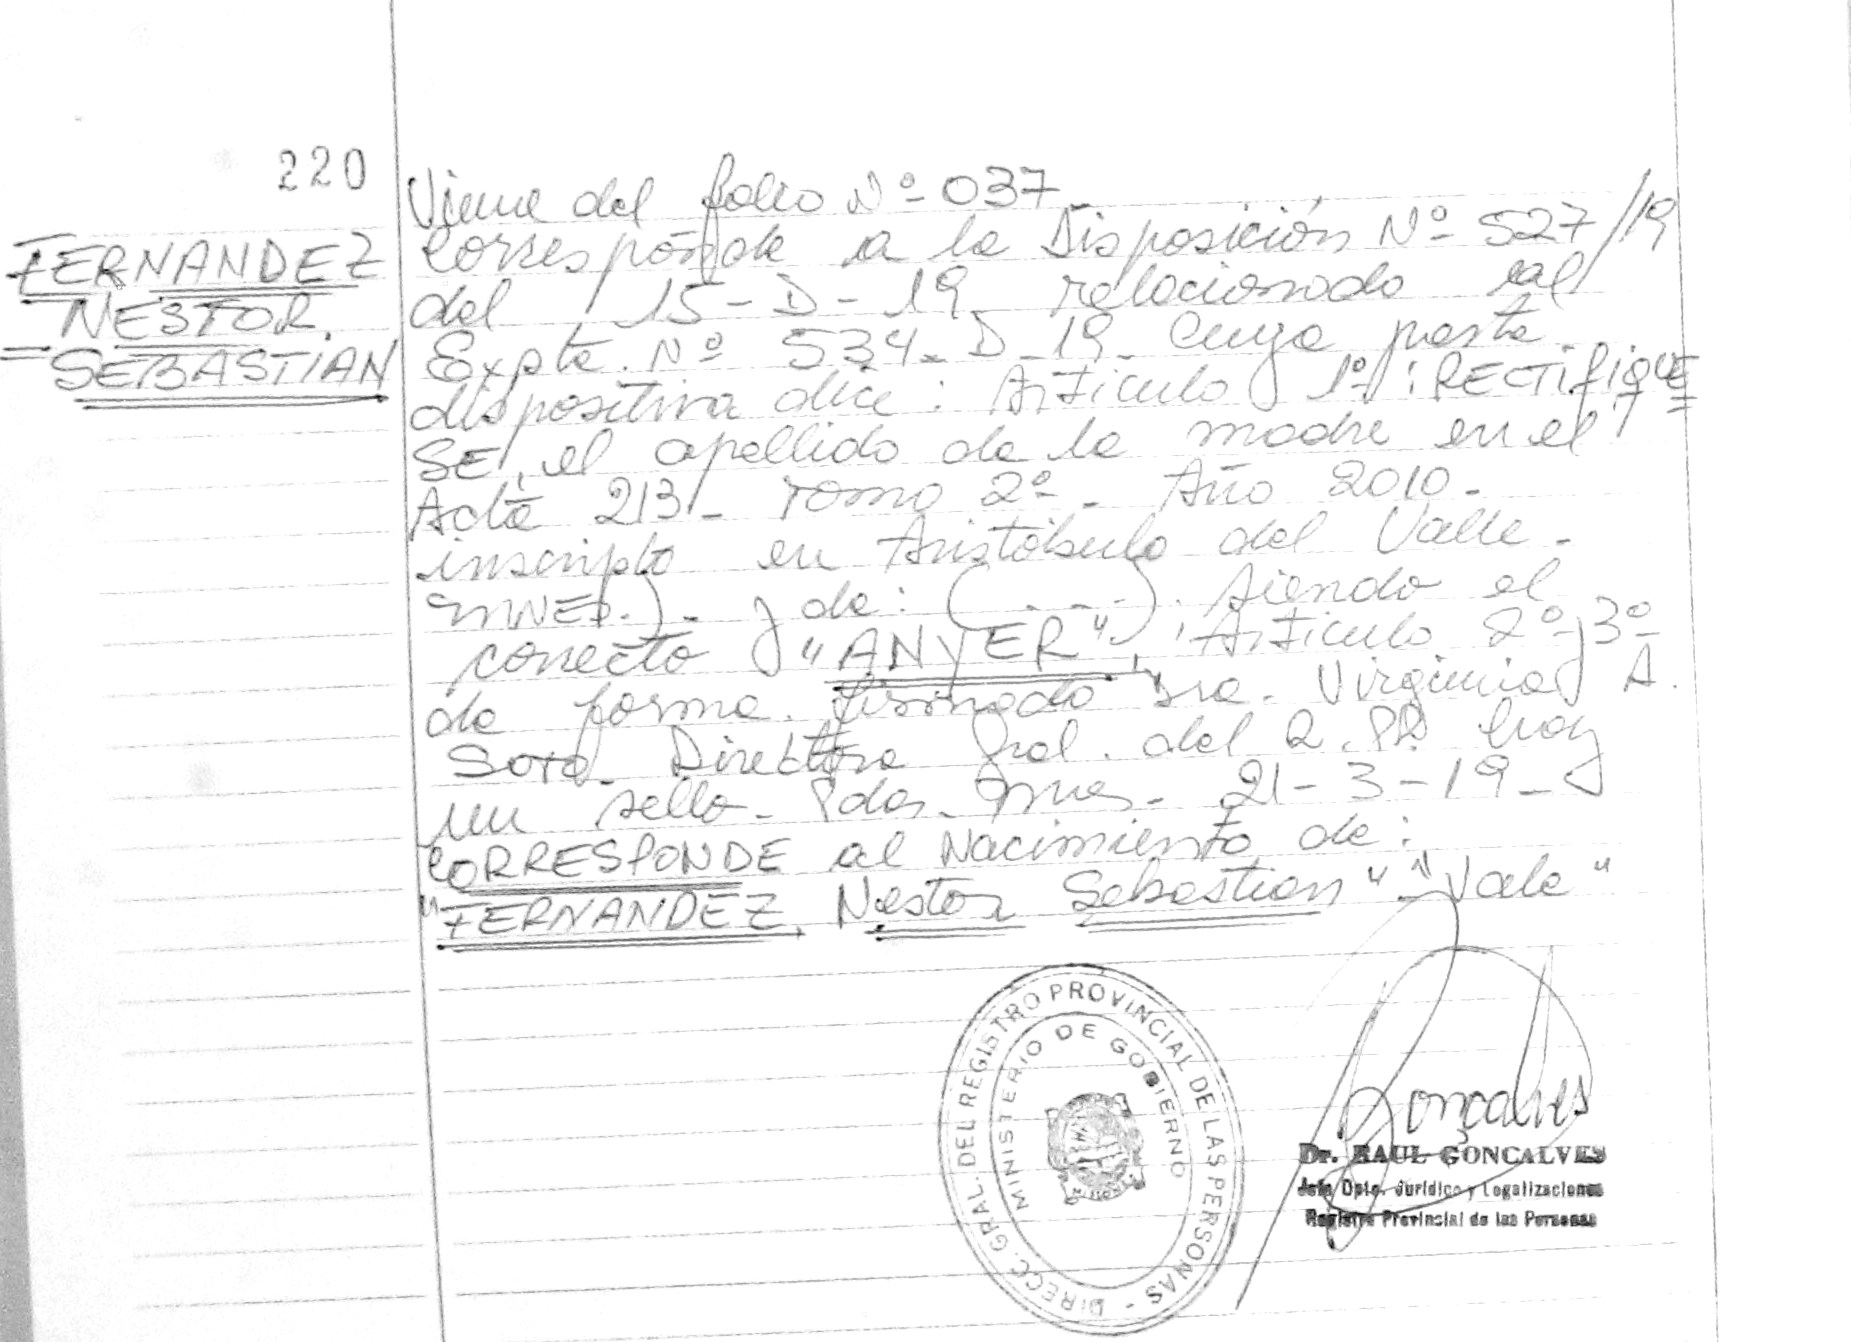 220
FERNANDEZ
NESTOR
SEBASTIAN
Viene del folio Nº 037
Corresponde a la Disposición Nº 527/19
del 15-D-19 relacionado al
Expte. Nº 534-D-19. Cuya parte
dispositiva dice: Artículo 1º: RECTIFIQUE
SE, el apellido de la madre en el
Acta 213- Tomo 2º- Año 2010-
inscripto en Aristóbulo del Valle-
y de: (----). Siendo el
correcto "ANYER". Artículo 2º y 3º
de forma. Firmado Sra. Virginia A.
Soto. Directora Gral. del R.P.P. hay
un sello- Pdas. Mnes- 21-3-19-
CORRESPONDE al Nacimiento de:
"FERNANDEZ, Nestor Sebastian" "Vale"
DIRECC. GRAL. DEL REGISTRO PROVINCIAL DE LAS PERSONAS -
MINISTERIO DE GOBIERNO
Goncalves
Dr. RAUL GONCALVES
Jefe Dpto. Jurídico y Legalizaciones
Registro Provincial de las Personas